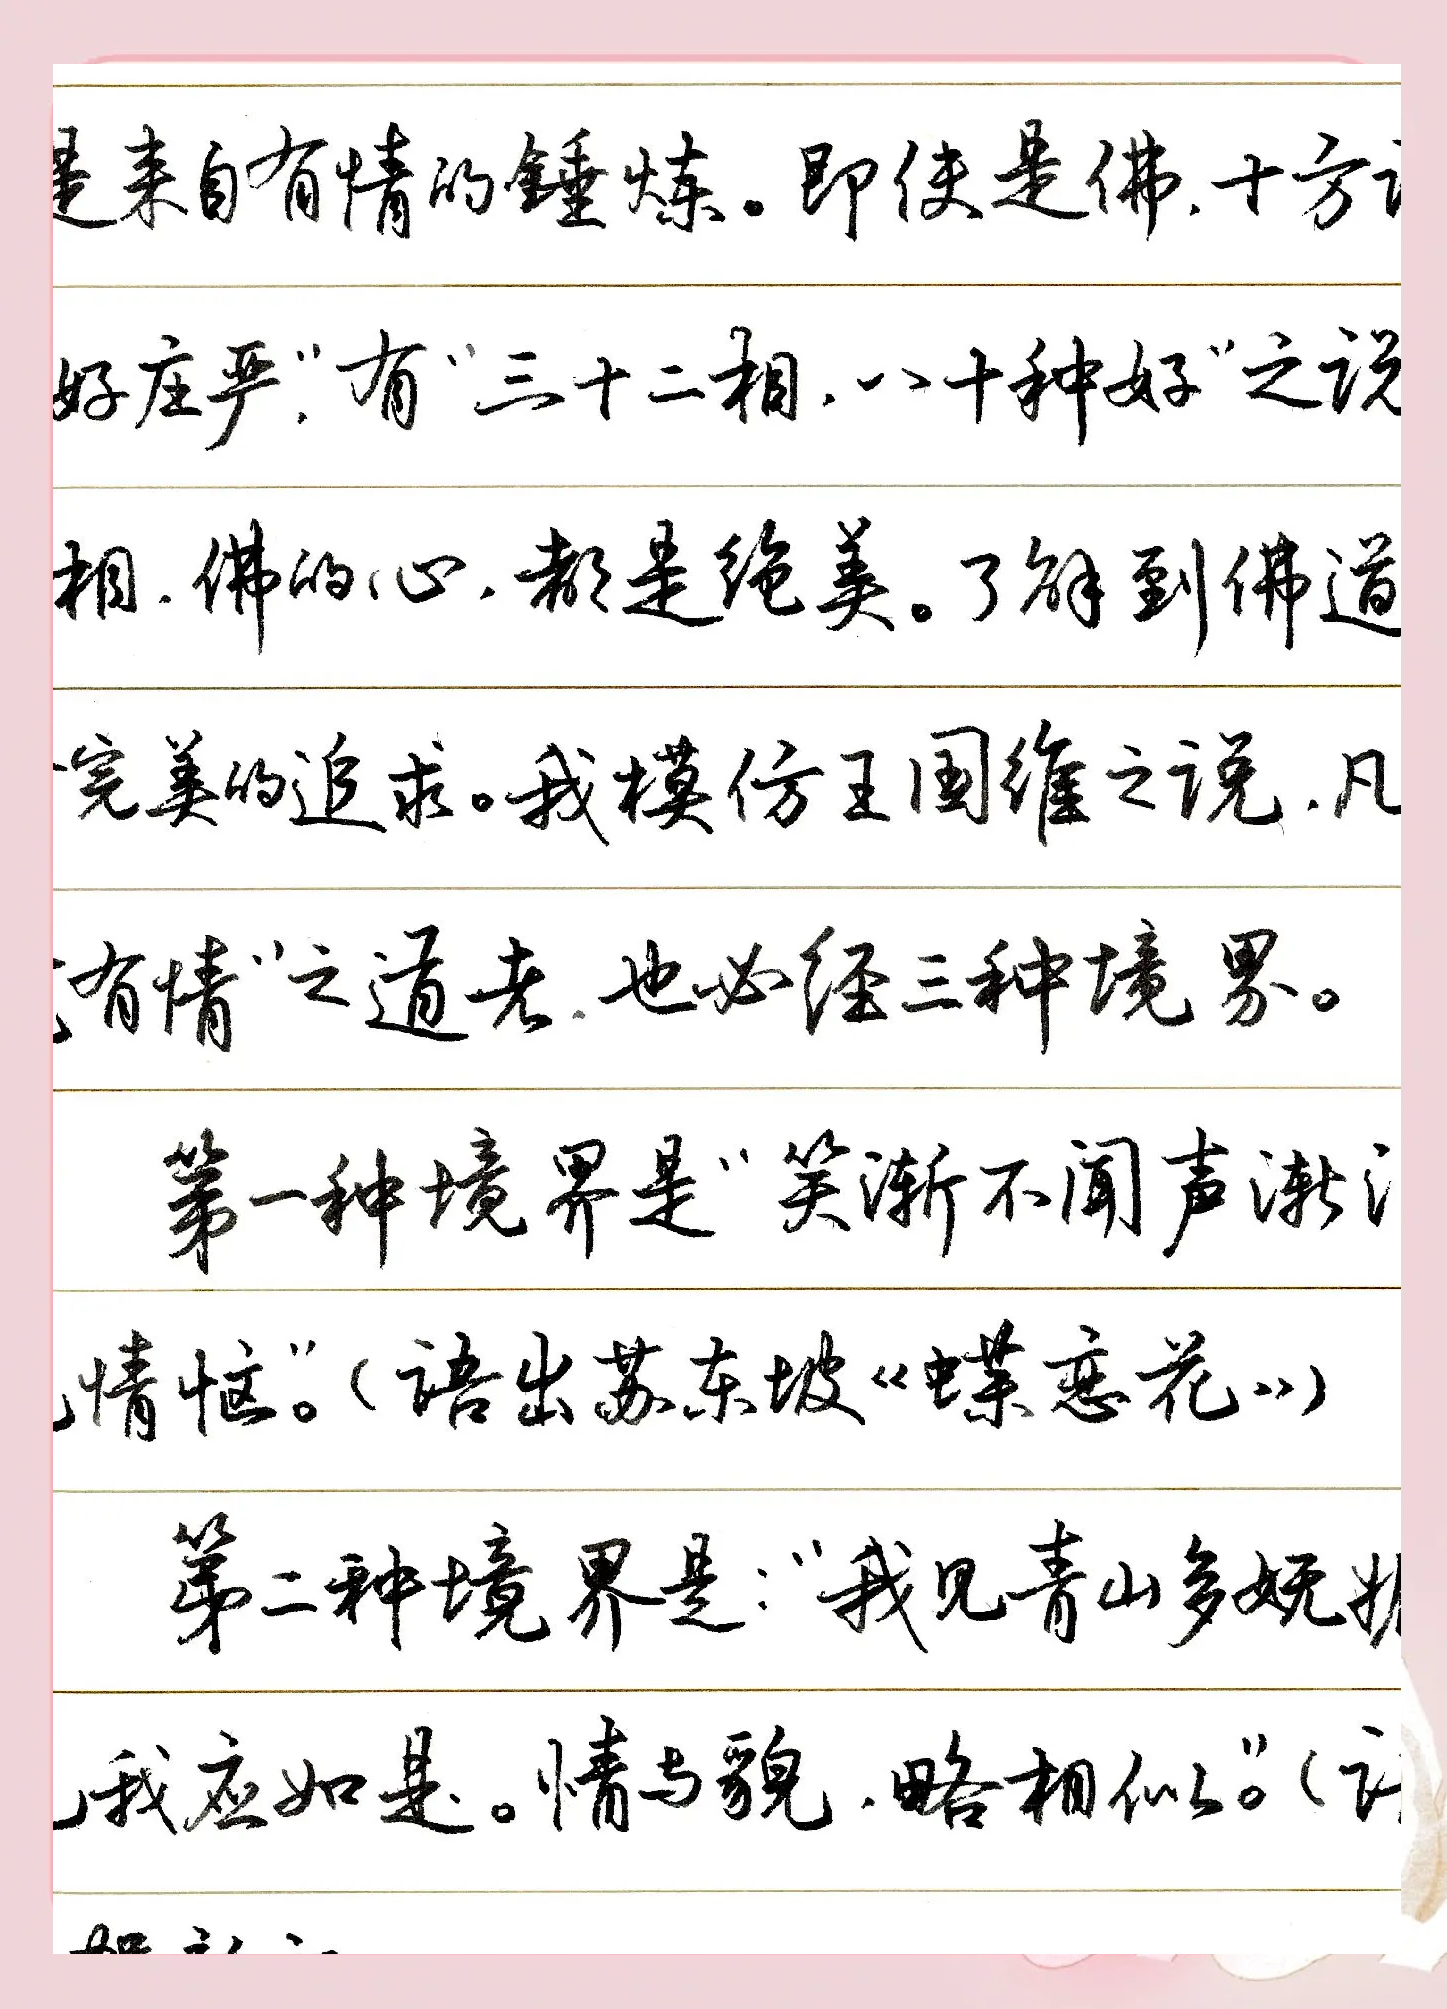 是来自有情的錘炼。即使是佛，十方
好庄严”，有“三十二相，八十种好”之说
相，佛的心，都是绝美。了解到佛道
完美的追求。我模仿王国维之说，凡
有情”之道者，也必经三种境界。
第一种境界是“笑渐不闻声渐
情恼”。（语出苏东坡《蝶恋花》）
第二种境界是：“我见青山多妩
我应如是。情与貌，略相似”。（